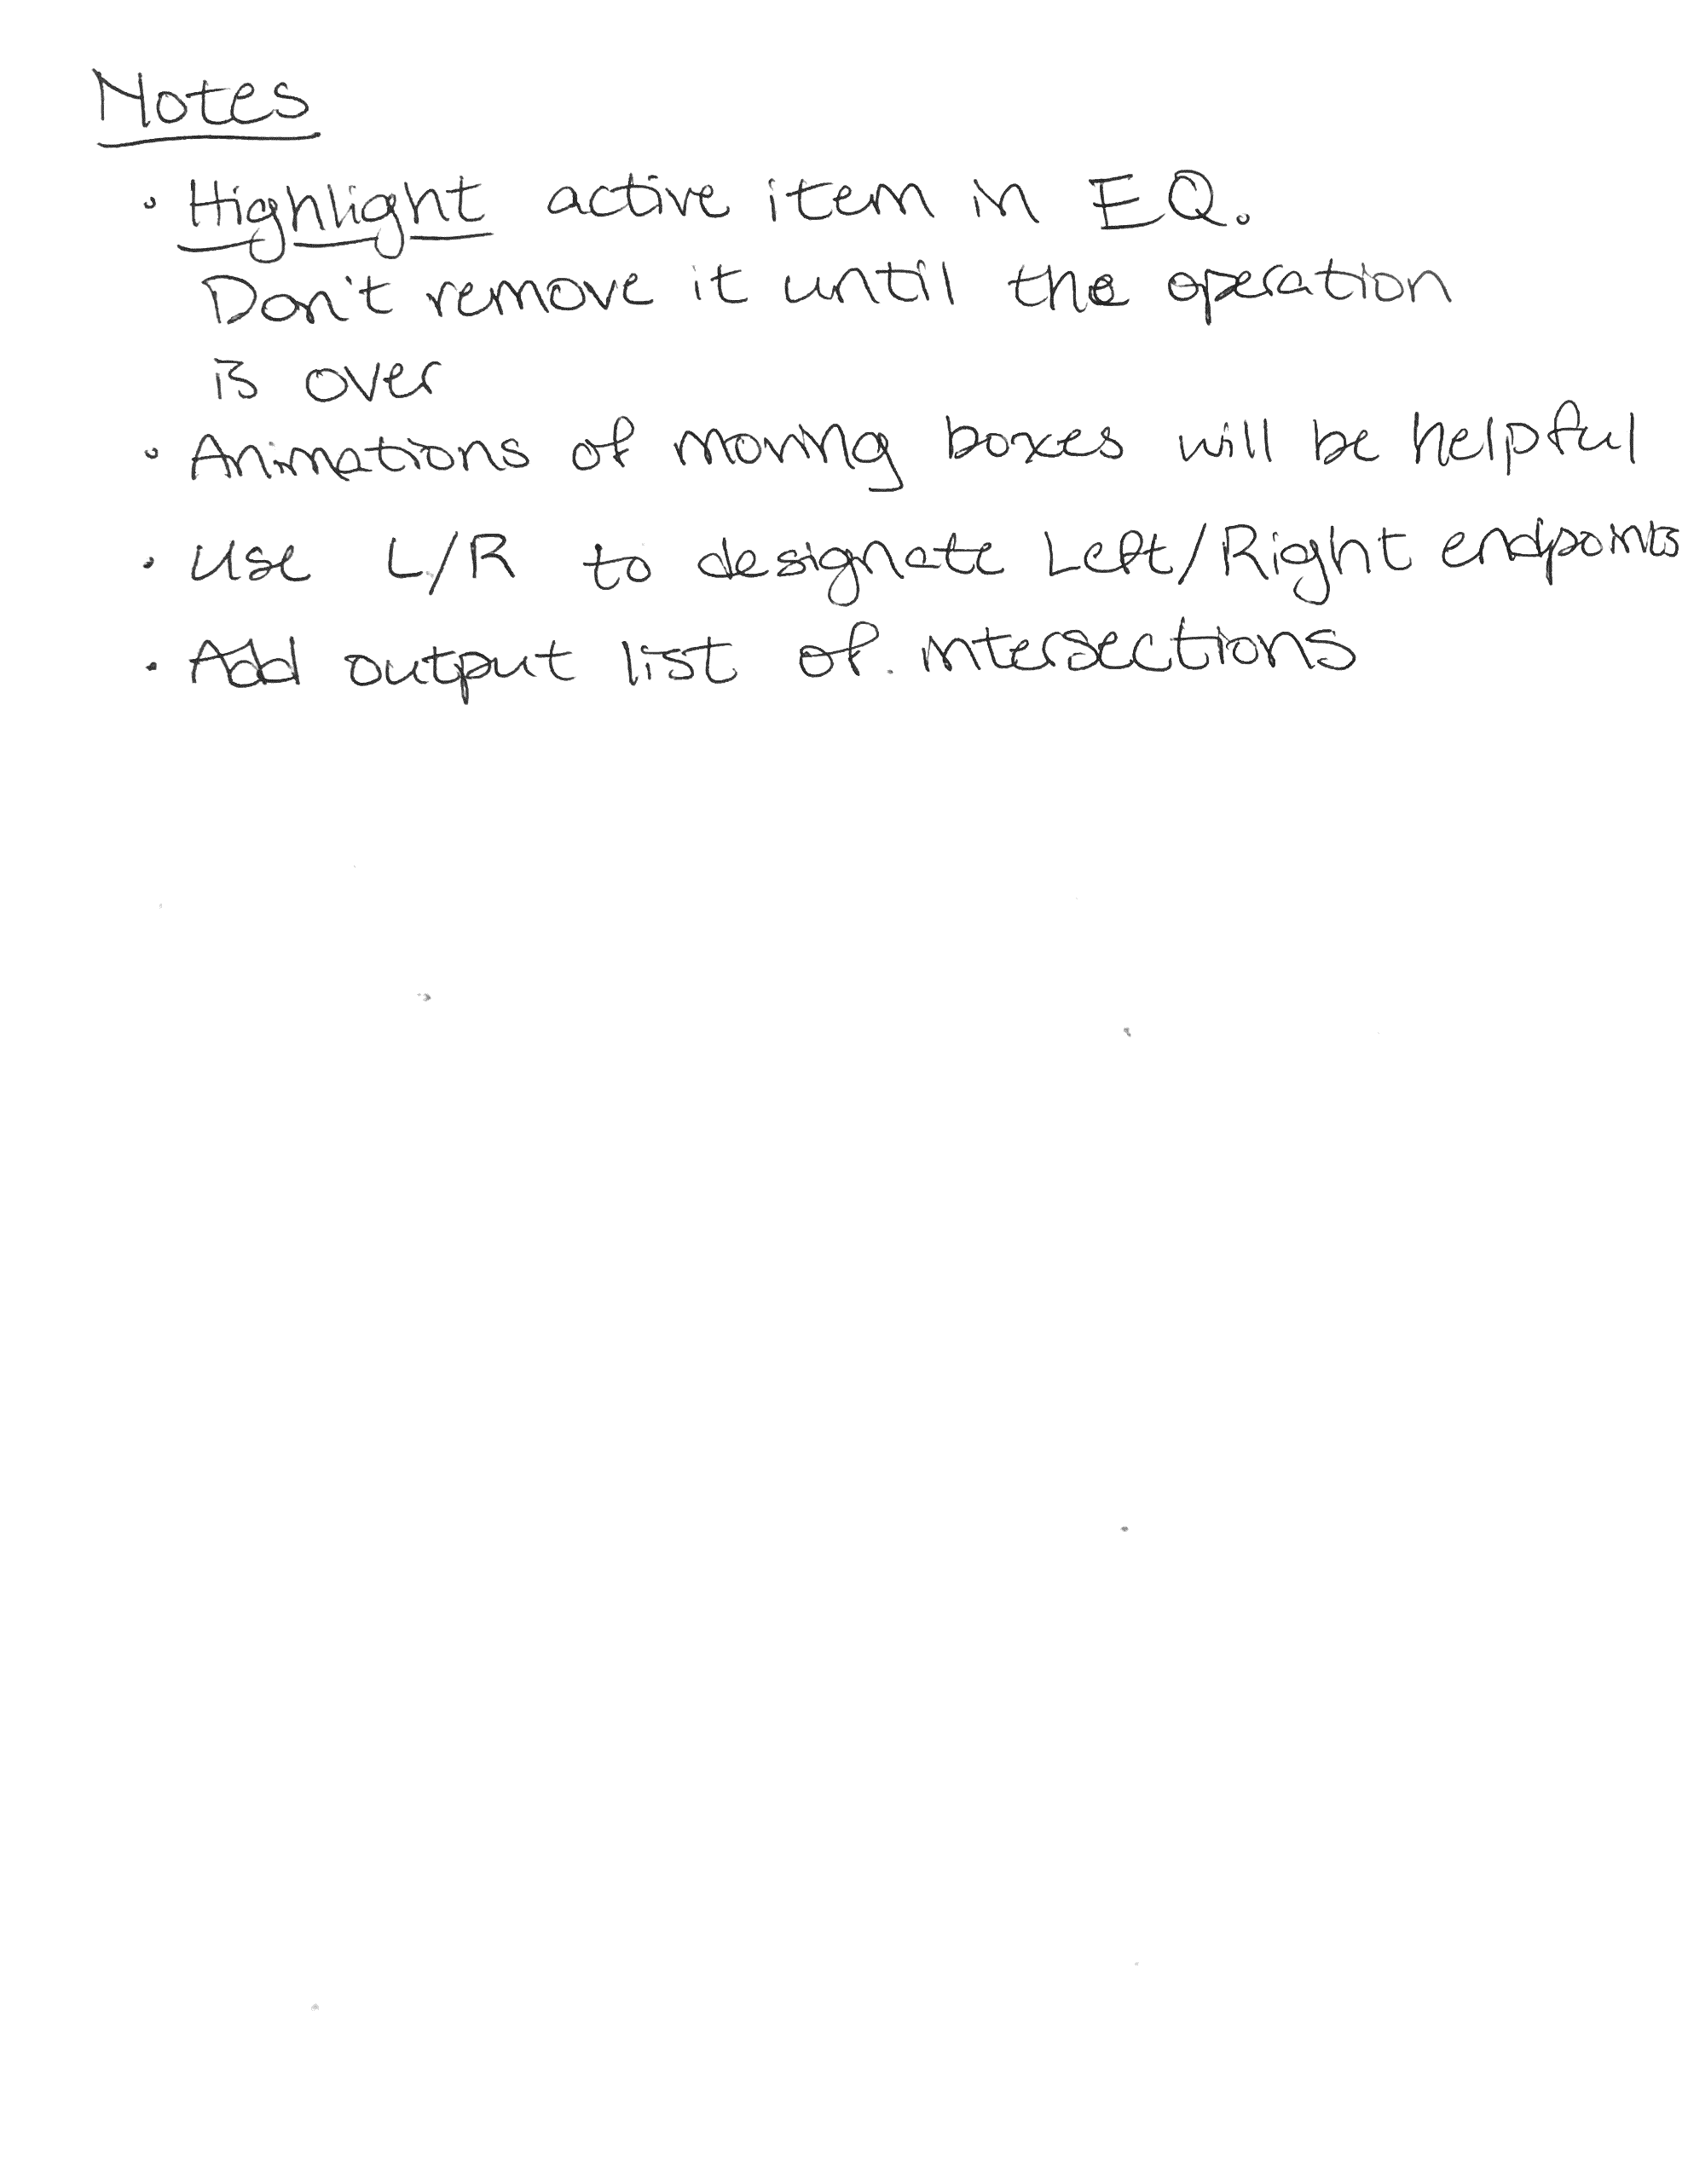 Notes
• Highlight active item in EQ.
Don't remove it until the operation
is over
• Animations of moving boxes will be helpful
• Use L/R to designate Left/Right endpoints
• Add output list of intersections